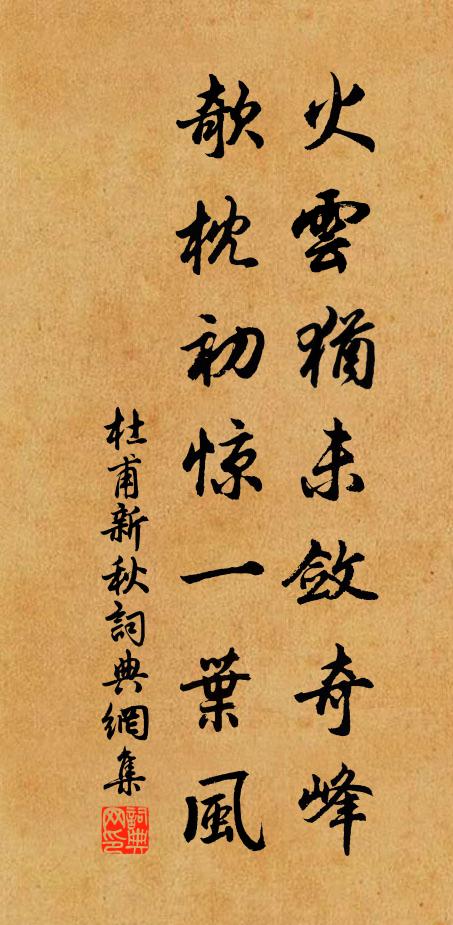 火雲猶未斂奇峰
欹枕初惊一葉風
杜甫新秋詞典網集
詞典网印